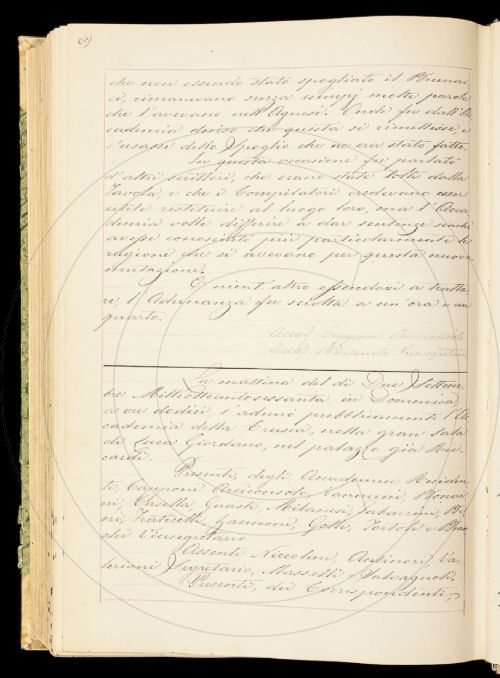 che non essendo stato spogliato il
ci, rimanevano senza esempj molte parole
che l'avevano nell'Agnesi. Onde fu dall'Ac
cademia deciso che questa si rimettesse, e
s'usasse dello Spoglio che ne era stato fatto.
In questa occasione fu parlato
d'altri scrittori, che erano stati tolti dalla
Tavola, e che i Compilatori credevano esser
utile restituire al luogo loro, ma l'Acca
demia volle differire a dar sentenza finchè
avesse conosciuto più particolarmente le
ragioni che si avevano per questa nuova
mutazione.
E nient'altro essendovi a tratta
re, l'Adunanza fu sciolta a un'ora e un
quarto.
La mattina del dì Due Settem
bre Milleottocentosessanta in Domenica,
a ore dodici, s'adunò pubblicamente l'Ac
cademia della Crusca, nella gran Sala
di Luca Giordano, nel palazzo già Ric
cardi.
Presenti, degli Accademici Residen
ti, Capponi Arciconsolo, Vannucci, Bonai
ni, Casella, Guasti, Milanesi, Tabarrini, Bi
ni, Fraticelli, Zannoni, Gotti, Tortoli e Bian
chi Vicesegretario
Assenti Niccolini, Antinori, Va
leriani Segretario, Massetti, Salvagnoli.
Presenti, dei Corrispondenti,